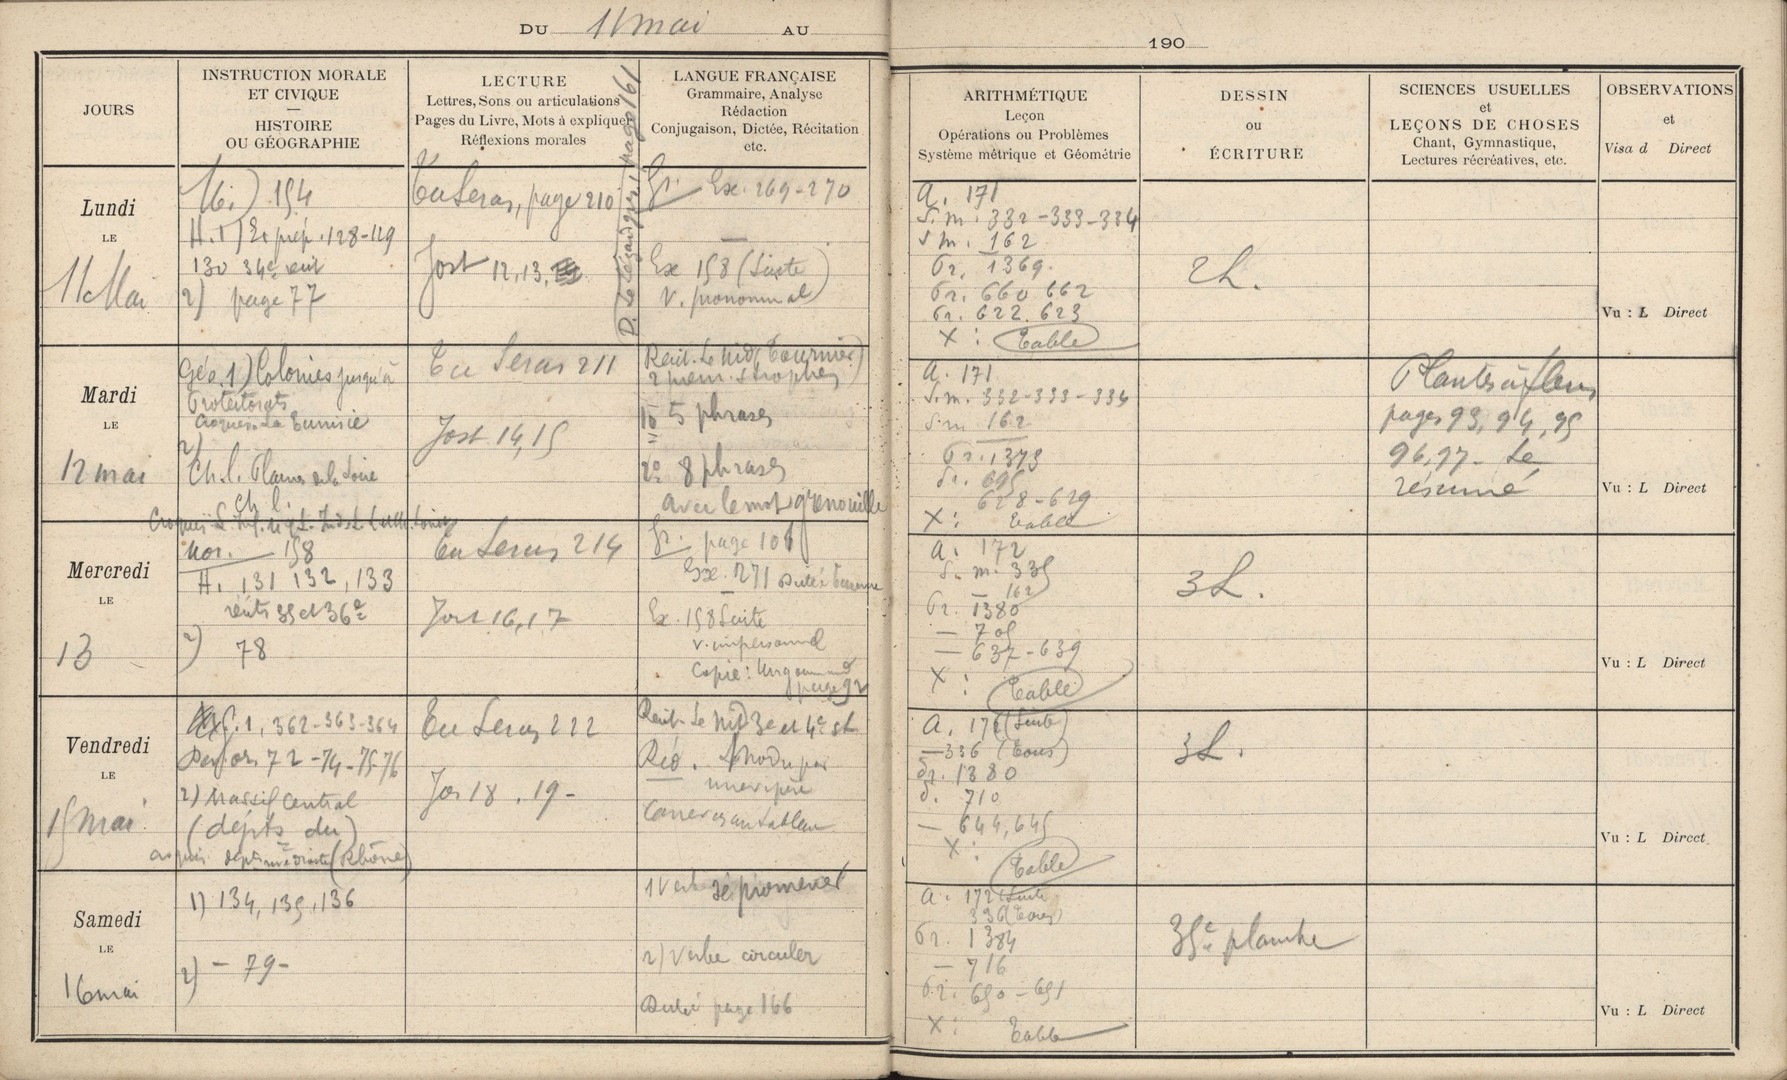 DU 11 mai AU
190
JOURS
INSTRUCTION MORALE
ET CIVIQUE
—
HISTOIRE
OU GÉOGRAPHIE
LECTURE
Lettres, Sons ou articulations
Pages du Livre, Mots à expliquer
Réflexions morales
LANGUE FRANÇAISE
Grammaire, Analyse
Rédaction
Conjugaison, Dictée, Récitation
etc.
ARITHMÉTIQUE
Leçon
Opérations ou Problèmes
Système métrique et Géométrie
DESSIN
ou
ÉCRITURE
SCIENCES USUELLES
et
LEÇONS DE CHOSES
Chant, Gymnastique,
Lectures récréatives, etc.
OBSERVATIONS
et
Visa d Direct
Lundi
LE
11 Mai
154
H. 1) Ex prép. 128-129
130 34e récit
2) page 77
Tu Seras, page 210
Jost 12, 13,
page 161
Gr. Ex. 269-270
Ex 158 (Suite)
v. pronominal
A. 171
S. m. 332-333-334
S m. 162
Pr. 1369.
Pr. 660 662
Pr. 622. 623
X : Table
2L.
Vu : L Direct
Mardi
LE
12 mai
Géo. 1) Colonies jusqu'à
Protectorats
Croquis La Tunisie
2)
Ch. l. Plaines de la Loire
Ch l.
Croquis
Tu Seras 211
Jost 14, 15
Récit. Le Nid (Tournier)
2 prem. strophes
1o 5 phrases
2o 8 phrases
avec le mot grenouille
A. 171
S. m. 332-333-334
S m 162
Pr. 1373
Pr. 695
628-629
X : Table
Plantes à fleurs
pages 93, 94, 95
96, 97 - Le
résumé
Vu : L Direct
Mercredi
LE
13
Mor. 158
H. 131 132, 133
récits 35 et 36e
2) 78
Tu Seras 214
Jost 16, 17
Gr. page 106
Ex. 271
Ex. 158 Suite
v. impersonnel
Copie : Un gourmand
page 92
A. 172
S. m. 335
— 162
Pr. 1380
— 705
— 637-639
X : Table
3L.
Vu : L Direct
Vendredi
LE
15 mai
1, 362-363-364
72-74-75 76
2) Massif Central
(dépts du)
croquis (Rhône)
Tu Seras 222
Jos 18, 19-
Récit. Le Nid 3e et 4e st.
Réd. Mordu par
une vipère
Canevas au tableau
A. 172 (Suite)
—336 (Tous)
Pr. 1380
P. 710
— 644, 645
X : Table
3L.
Vu : L Direct
Samedi
LE
16 mai
1) 134, 135, 136
2) - 79 -
1 Verbe se promener
2) Verbe circuler
Dictée page 166
A. 172 (Suite)
336 (Tous)
Pr. 1384
— 716
Pr. 650-651
X : Table
35e planche
Vu : L Direct